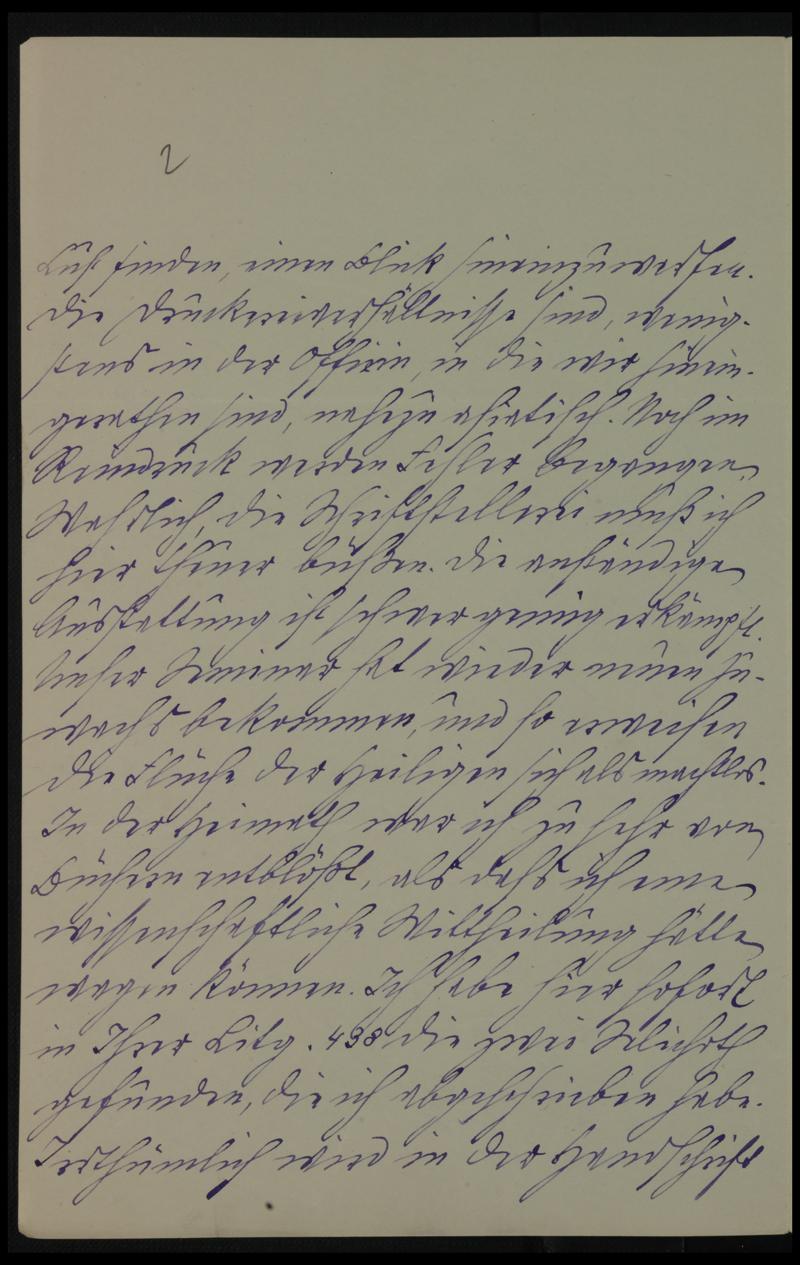 2
Lust finden, einen Blick hineinzuwerfen.
Die Druckereiverhältnisse sind, wenig-
stens in der Offizin, in die wir hinein-
gerathen sind, nahezu asiatisch. Noch im
Reindruck werden Fehler begangen.
Wahrlich, die Schriftstellerei muß ich
hier theuer büßen. Die anständige
Ausstattung ist schwer genug erkämpft.
Unser Seminar hat wieder neuen Zu-
wachs bekommen, und so erweisen
die Flüche der Heiligen sich als machtlos.
In der Heimath war ich zu sehr von
Büchern entblößt, als daß ich eine
wissenschaftliche Mittheilung hätte
wagen können. Ich habe hier sofort
in Ihrer Litg. 438 die zwei Selichoth
gefunden, die ich abgeschrieben habe.
Irrthümlich wird in der Handschrift